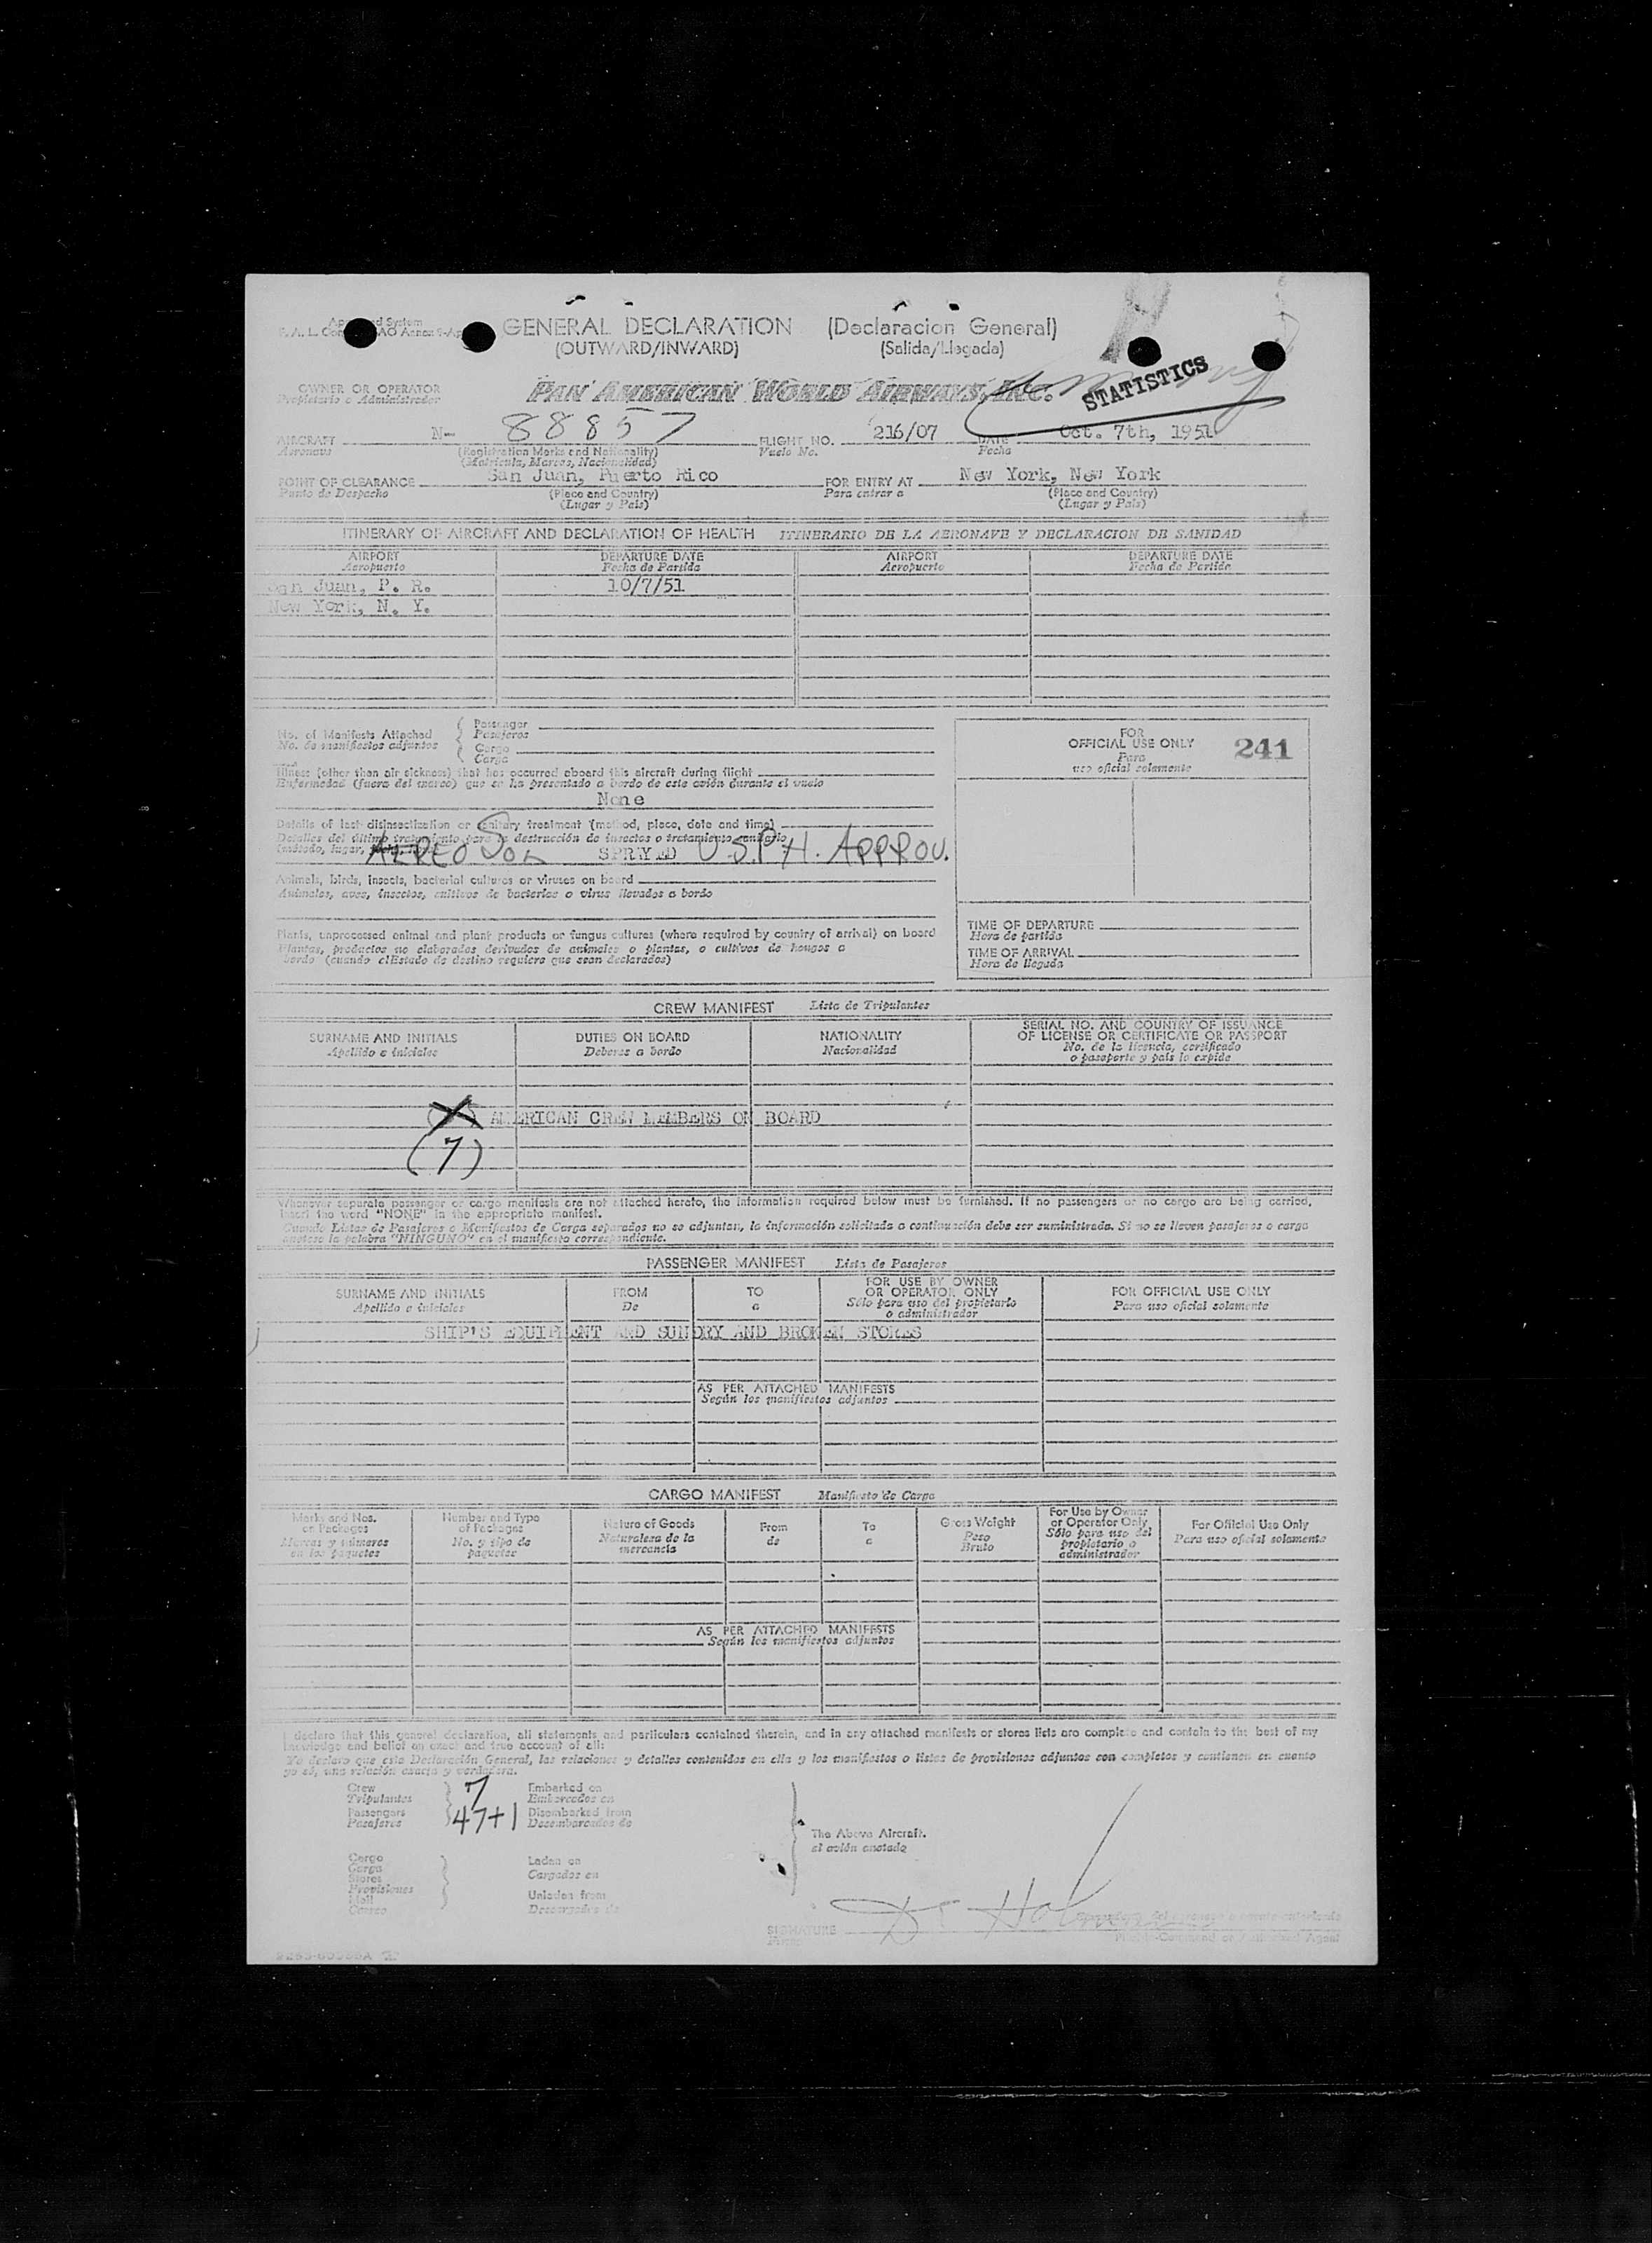 GENERAL DECLARATION (Declaracion General)
(OUTWARD/INWARD) (Salida/Llegada)
OWNER OR OPERATOR
Propietario o Administrador
PAN AMERICAN WORLD AIRWAYS, INC.
STATISTICS
AIRCRAFT N- 88857 FLIGHT NO. 216/07 DATE Oct. 7th, 1951
Aeronave (Registration Marks and Nationality) Vuelo No. Fecha
(Matricula, Marcas, Nacionalidad)
POINT OF CLEARANCE San Juan, Puerto Rico FOR ENTRY AT New York, New York
Punto de Despacho (Place and Country) Para entrar a (Place and Country)
(Lugar y Pais) (Lugar y Pais)
ITINERARY OF AIRCRAFT AND DECLARATION OF HEALTH ITINERARIO DE LA AERONAVE Y DECLARACION DE SANIDAD
AIRPORT DEPARTURE DATE AIRPORT DEPARTURE DATE
Aeropuerto Fecha de Partida Aeropuerto Fecha de Partida
San Juan, P. R. 10/7/51
New York, N. Y.
No. of Manifests Attached
No. de manifiestos adjuntos
Passenger
Pasajeros
Cargo
Carga
Illness (other than air sickness) that has occurred aboard this aircraft during flight
Enfermedad (fuera del mareo) que se ha presentado a bordo de este avión durante el vuelo
None
Details of last disinsectization or sanitary treatment (method, place, date and time)
Detalles del último tratamiento para la destrucción de insectos o tratamiento sanitario
(método, lugar,
AEREOSOL SPRAYED U.S.P.H. APPROV.
Animals, birds, insects, bacterial cultures or viruses on board
Animales, aves, insectos, cultivos de bacterias o virus llevados a bordo
Plants, unprocessed animal and plant products or fungus cultures (where required by country of arrival) on board
Plantas, productos no elaborados derivados de animales o plantas, o cultivos de hongos a
bordo (cuando el Estado de destino requiere que sean declarados)
FOR
OFFICIAL USE ONLY 241
Para
uso oficial solamente
TIME OF DEPARTURE
Hora de partida
TIME OF ARRIVAL
Hora de llegada
CREW MANIFEST Lista de Tripulantes
SURNAME AND INITIALS DUTIES ON BOARD NATIONALITY SERIAL NO. AND COUNTRY OF ISSUANCE
OF LICENSE OR CERTIFICATE OR PASSPORT
Apellido e iniciales Deberes a bordo Nacionalidad No. de la licencia, certificado
o pasaporte y pais lo expide
AMERICAN CREW MEMBERS ON BOARD
(7)
Whenever separate passenger or cargo manifests are not attached hereto, the information required below must be furnished. If no passengers or no cargo are being carried,
insert the word "NONE" in the appropriate manifest.
Cuando Listas de Pasajeros o Manifiestos de Carga separados no se adjuntan, la información solicitada a continuación debe ser suministrada. Si no se lleven pasajeros o carga
anótese la palabra "NINGUNO" en el manifiesto correspondiente.
PASSENGER MANIFEST Lista de Pasajeros
SURNAME AND INITIALS FROM TO FOR USE BY OWNER
OR OPERATOR ONLY FOR OFFICIAL USE ONLY
Apellido e iniciales De a Sólo para uso del propietario
o administrador Para uso oficial solamente
SHIP'S EQUIPMENT AND SUNDRY AND BROKEN STORES
AS PER ATTACHED MANIFESTS
Según los manifiestos adjuntos
CARGO MANIFEST Manifiesto de Carga
Marks and Nos.
on Packages
Marcas y números
en los paquetes
Number and Type
of Packages
No. y tipo de
paquetes
Nature of Goods
Naturaleza de la
mercancia
From
de
To
a
Gross Weight
Peso
Bruto
For Use by Owner
or Operator Only
Sólo para uso del
propietario o
administrador
For Official Use Only
Para uso oficial solamente
AS PER ATTACHED MANIFESTS
Según los manifiestos adjuntos
I declare that this general declaration, all statements and particulars contained therein, and in any attached manifests or stores lists are complete and contain to the best of my
knowledge and belief an exact and true account of all:
Yo declaro que esta Declaración General, las relaciones y detalles contenidos en ella y los manifiestos o listas de provisiones adjuntos con completos y contienen en cuanto
yo sé, una relación exacta y verdadera.
Crew 7 Embarked on
Tripulantes Embarcados en
Passengers 47+1 Disembarked from
Pasajeros Desembarcados de
The Above Aircraft.
el avión anotado
Cargo
Carga
Stores
Provisiones
Mail
Correo
Laden on
Cargados en
Unladen from
Descargados de
SIGNATURE
Firma